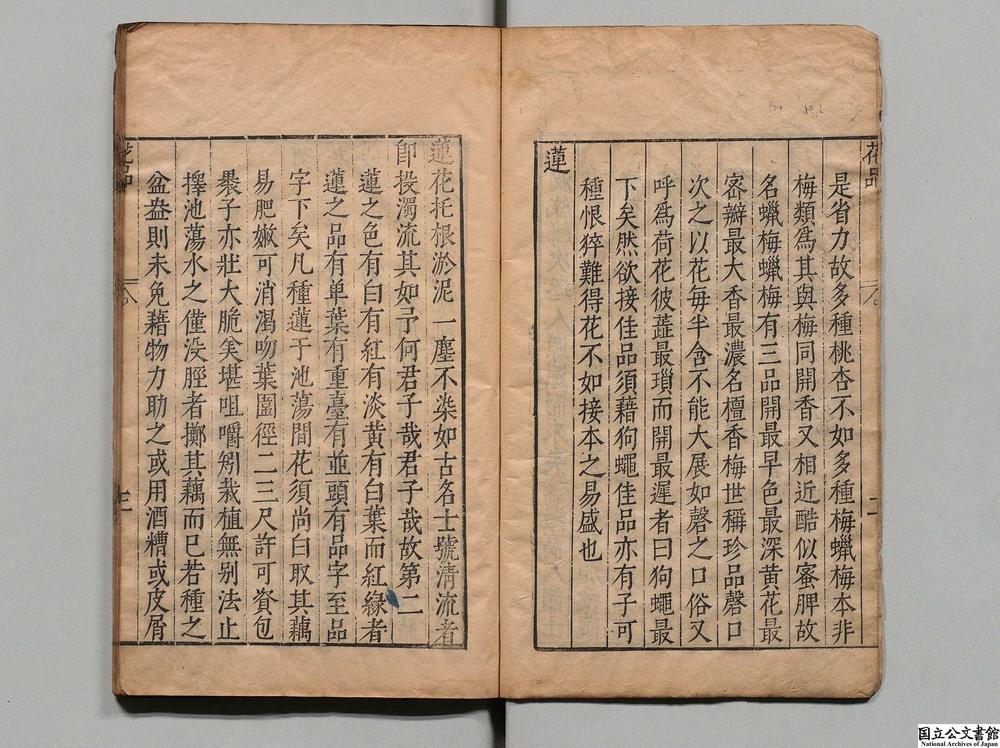 花品
二
是省力故多種桃杏不如多種梅蠟梅本非
梅類為其與梅同開香又相近酷似蜜脾故
名蠟梅蠟梅有三品開最早色最深黃花最
密瓣最大香最濃名檀香梅世稱珍品磬口
次之以花每半含不能大展如磬之口俗又
呼為荷花彼蕋最瑣而開最遲者曰狗蠅最
下矣然欲接佳品須藉狗蠅佳品亦有子可
種恨猝難得花不如接本之易盛也
蓮
蓮花托根淤泥一塵不染如古名士號清流者
即投濁流其如予何君子哉君子哉故第二
蓮之色有白有紅有淡黃有白葉而紅緣者
蓮之品有单葉有重臺有並頭有品字至品
字下矣凡種蓮于池蕩間花須尚白取其藕
易肥嫩可消渴吻葉圍徑二三尺許可資包
褁子亦壯大脆美堪咀嚼矧栽植無別法止
擇池蕩水之僅没脛者擲其藕而已若種之
盆盎則未免藉物力助之或用酒糟或皮屑
花品
国立公文書館
National Archives of Japan